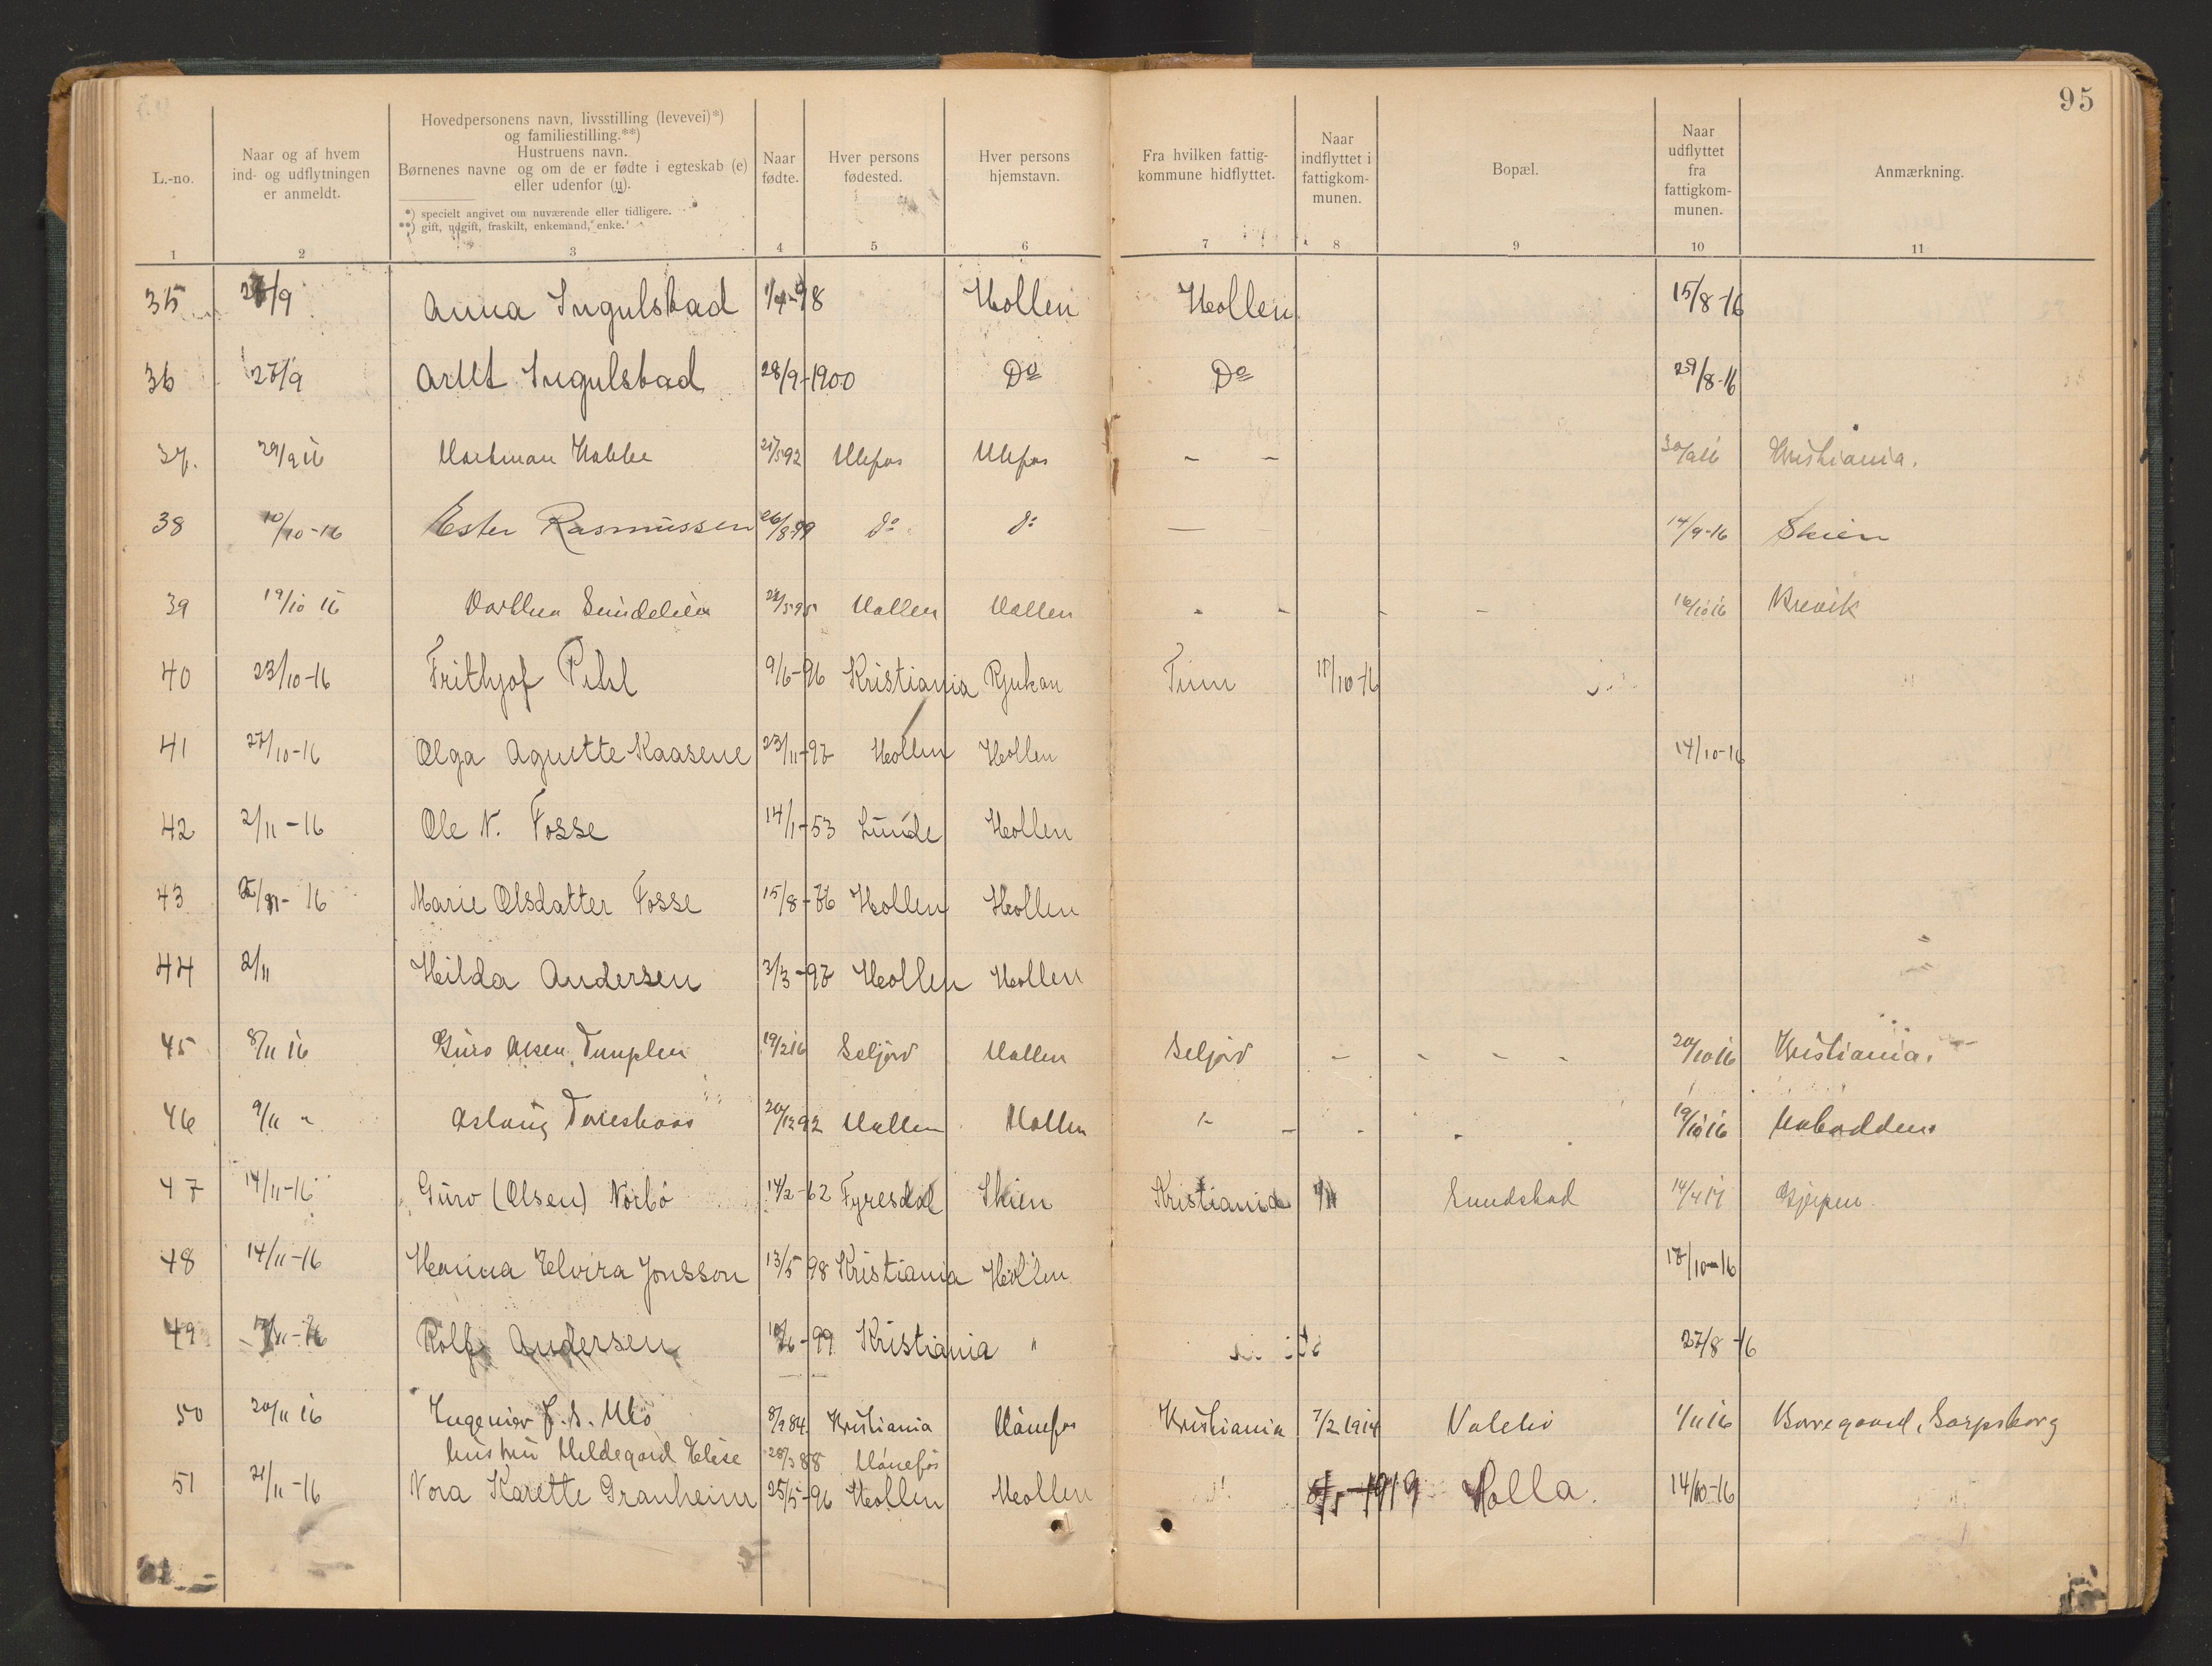 95
L.-no.
Naar og af hvem
ind- og udflytningen
er anmeldt.
Hovedpersonens navn, livsstilling (levevei)*)
og familiestilling.**)
Hustruens navn.
Børnenes navne og om de er fødte i egteskab (e)
eller udenfor (u).
*) specielt angivet om nuværende eller tidligere.
**) gift, ugift, fraskilt, enkemand, enke.
Naar
fødte.
Hver persons
fødested.
Hver persons
hjemstavn.
Fra hvilken fattig-
kommune hidflyttet.
Naar
indflyttet i
fattigkom-
munen.
Bopæl.
Naar
udflyttet
fra
fattigkom-
munen.
Anmærkning.
1 2 3 4 5 6 7 8 9 10 11
35 /9 Anna Ingulstad 1/4-98 Hollen Hollen 15/8-16
36 27/9 Arnt Ingulstad 28/9-1900 Do Do 29/8-16
37. 29/9 16 Hartman 92 Ulefos Ulefos - - 30/9 16 Kristiania.
38 10/10-16 Ester Rasmussen 26/8 99 do do — 14/9-16 Skien
39 19/10 16 Dorthea Sundeleien 95 Hollen Hollen - - - - 16/10 16 Brevik
40 23/10-16 Frithjof Pihl 9/6-96 Kristiania Rjukan Tinn 17/10-16
41 27/10-16 Olga Agnette Kaasene 23/11-97 Hollen Hollen 14/10-16
42 2/11-16 Ole N. Fosse 14/1-53 Lunde Hollen
43 2/11-16 Marie Olsdatter Fosse 15/8- Hollen Hollen
44 2/11 Hilda Andersen 3/3-97 Hollen Hollen
45 8/11 16 Guro Olsen 19/2 16 Seljord Hollen Seljord - - - - 20/10 16 Kristiania.
46 9/11 " Aslaug 20/12 92 Hollen Hollen - - - - 19/10 16 Notodden.
47 14/11-16 Guro (Olsen) Norbö 14/2-62 Fyresdal Skien Kristiania Sundstad 14/4 17 Gjerpen
48 14/11-16 Hanna Elvira Jonsson 13/5 98 Kristiania Hollen 17/10-16
49 /11-16 Rolf Andersen -99 Kristiania " 27/8-16
50 20/11 16 Ingeniør 8/9 84. Kristiania Hönefos Kristiania 7/2 1914 Valebö 1/11 16 Borregaard, Sarpsborg
hustru Hildegard Elise 28/3 88 Hönefos
51 21/11-16 Nora Karette Granheim 25/5-96 Hollen Hollen 1919 Holla. 14/10-16